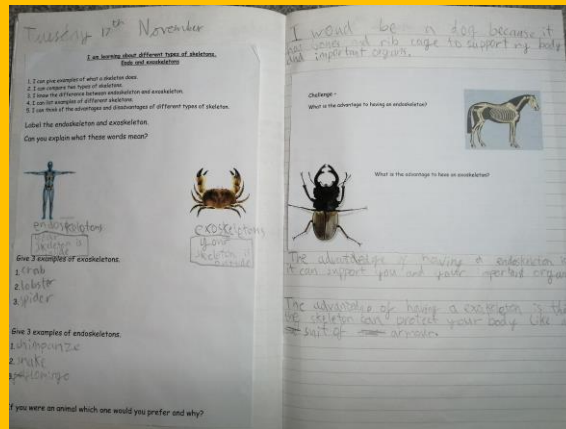 Tuesday 17th November
I am learning about different types of skeletons.
Endo and exoskeletons
1. I can give examples of what a skeleton does.
2. I can compare two types of skeletons.
3. I know the difference between endoskeleton and exoskeleton.
4. I can list examples of different skeletons.
5. I can think of the advantages and disadvantages of different types of skeleton.
Label the endoskeleton and exoskeleton.
Can you explain what these words mean?
endoskelotons
skeleton is
exoskeletons
your
skeleton is
outside
Give 3 examples of exoskeletons.
1. crab
2. lobster
3. spider
Give 3 examples of endoskeletons.
1. chimpanze
2. snake
3.
If you were an animal which one would you prefer and why?
I woud be a dog because it
has bones and rib cage to support my body
and important organ.
Challenge –
What is the advantage to having an endoskeleton?
What is the advantage to have an exoskeleton?
The advantage of having a endoskeleton is
it can support you and your inportant organ
The advantage of having a exoskeleton is the
skeleton can protect your body like a
suit of armour.